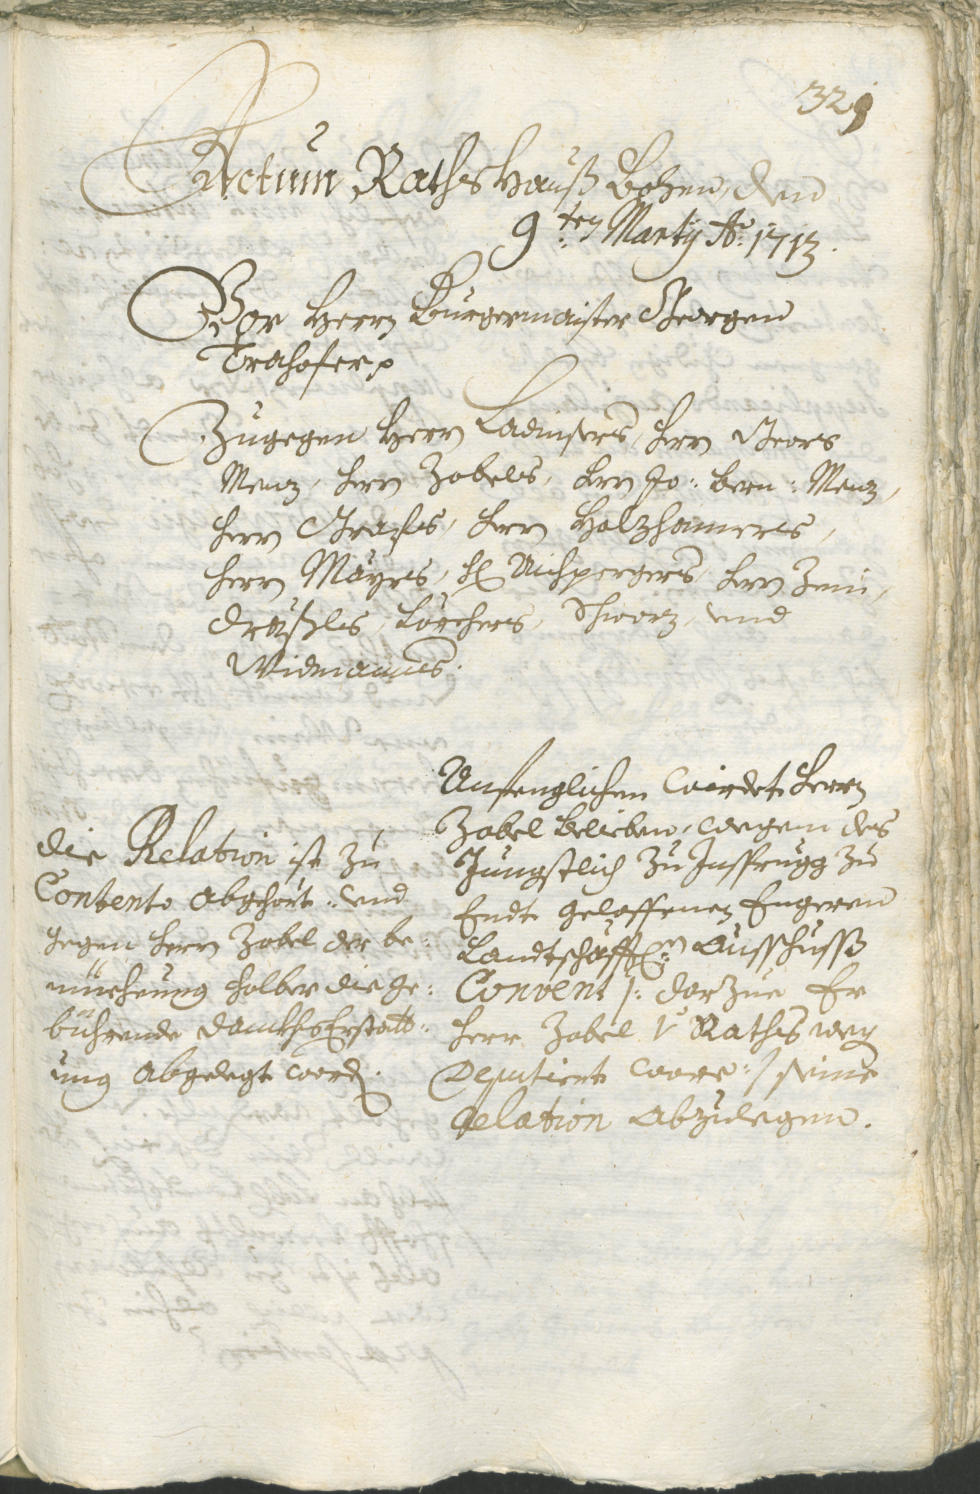 329
Actum Raths Hauß Bozen, den
9ten Marty Ao: 1713.
Vor Herrn Burgermaister Georgen
Trahofer p
Zugegen Herrn Ladinsers, Herrn Geors
Menz, Herrn Zobels, Herrn Jo: bern: Menz,
Herrn Grafs, Herrn Holzhamers,
Herrn Mayrs, Hl Aichpergers, Herrn Zeni,
Dräxls, Lörchers, Schwarz, und
Widmanns.
Anfenglichen wirdet Herrn
Zobel belieben, wegen des
Jüngstlich zu Insprugg zu
Endt geloffenen Engeren
Landtschäfftl:en Ausschusß
Convent /: darzue Er
Herr Zobel v: Raths weg
Deputiert ware :/ seine
Relation abzulegen.
die Relation ist zu
Contento abgehört: und
gegen Herrn Zobel der be:
müehung halber die ge:
bührende danckhs Erstatt:
ung abgelegt word.